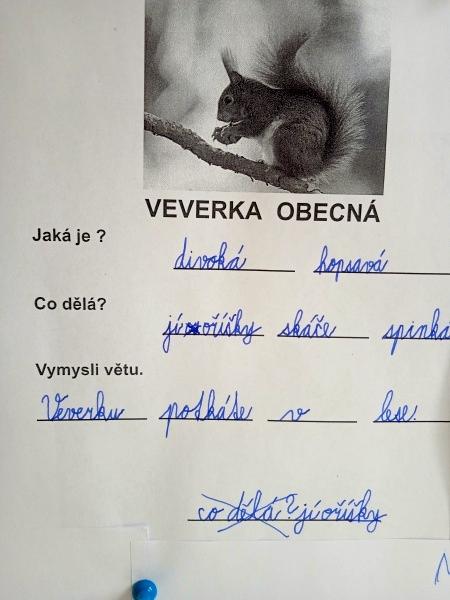 VEVERKA OBECNÁ
Jaká je ?
divoká hopsavá
Co dělá?
jí oříšky skáče spinká
Vymysli větu.
Veverku potkáte v lese.
co dělá? jí oříšky